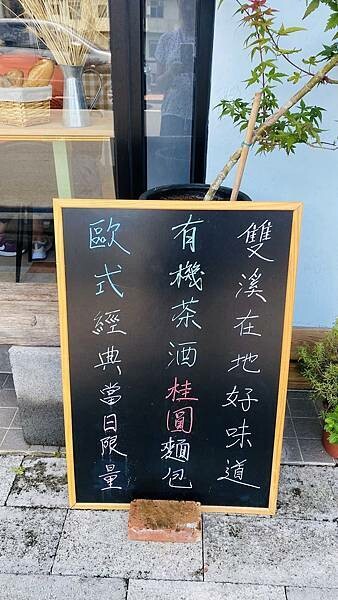 雙溪在地好味道
有機茶酒桂圓麵包
歐式經典當日限量